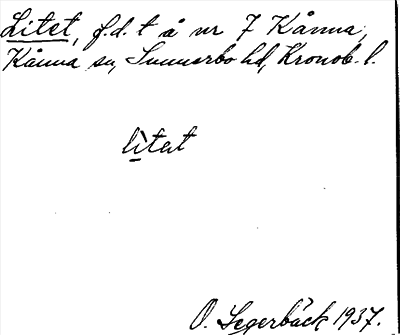 Litet, f.d. t å nr 7 Kånna,
Kånna sn, Sunnerbo hd, Kronob. l.
lìtet
O. Segerbäck 1937.